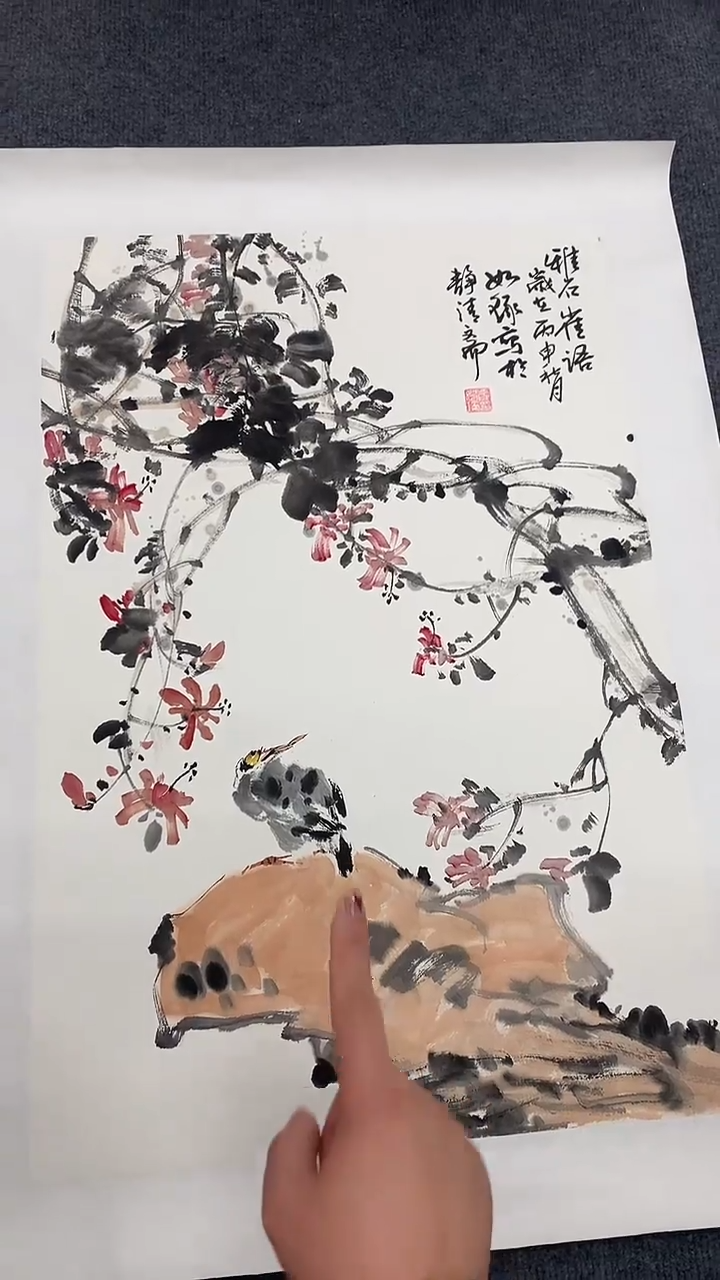 雅石雀语
岁在丙申背
如琢写于
静清斋